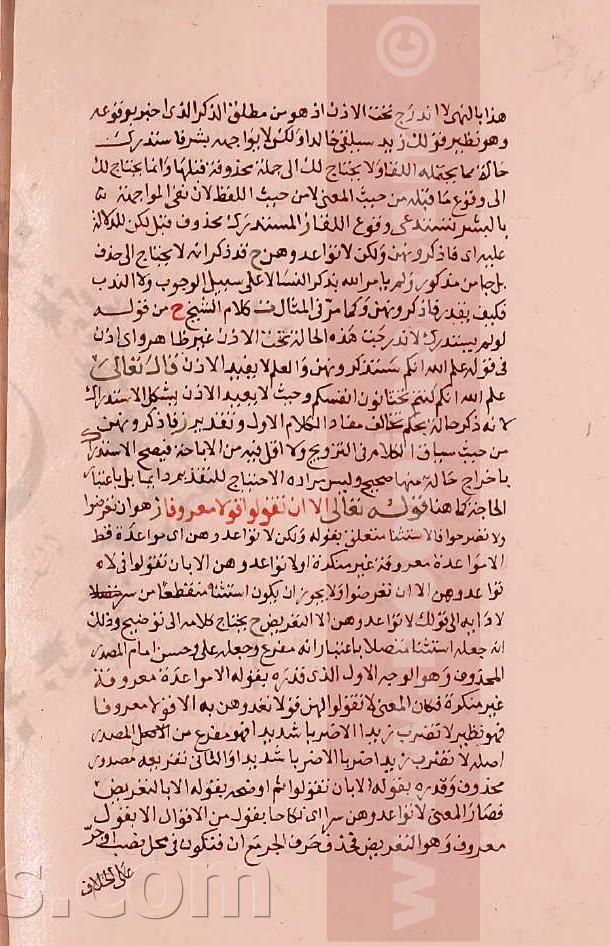 هذا بالنهى لا اندرج تحت الاذن اذ هو من مطلق الذكر الذى اخبر بوقوعه
وهو نظير قولك زيد سيلقى خالدا ولكن لا يواجهه بشر فاستدرك
حالة مما يحتمله اللقا ولا يحتاج لك الى جملة محذوفة قبلها وانما يحتاج لك
الى وقوع ما قبله من حيث المعنى لا من حيث اللفظ لان نفى المواجهة
بالبشر تستدعى وقوع اللقا ز المستدرك محذوف قبل لكن للدلالة
عليه اى فاذكروهن ولكن لا تواعدوهن ح قد ذكر انه لا يحتاج الى حذف
بل جا من مذكور ولم يامر الله بذكر النسا لا على سبيل الوجوب ولا الندب
فكيف يقدر فاذكروهن وكما مر فى المثال ف كلام الشيخ ح من قوله
لو لم يستدرك لاندرجت هذه الحالة تحت الاذن غير ظاهر واى اذن
فى قوله علم الله انكم ستذكرونهن والعلم لا يفيد الاذن قال تعالى
علم الله انكم كنتم تختانون انفسكم وحيث لا يفيد الاذن يشكل الاستدراك
لانه ذكر حالة بحكم تخالف مفاد الكلام الاول وتقدير ز فاذكروهن
من حيث سياق الكلام فى التزويج ولا اقل فيه من الاباحة فيصح الاستدراك
باخراج حالة منها صحيح وليس مراده الاحتياج للتقدير دايما بل باعتبار
الحاجة كما هنا قوله تعالى الا ان تقولوا قولا معروفا ز هو ان تعرضوا
ولا تصرحوا فالاستثنا متعلق بقوله ولكن لا تواعدوهن اى مواعدة قط
الا مواعدة معروفة غير منكرة او لا تواعدوهن الا بان تقولوا فى لا
تواعدوهن الا ان تعرضوا ولا يجوز ان يكون استثنا منقطعا من سر
لادايه الى قولك لا تواعدوهن الا التعريض ح يحتاج كلامه الى توضيح وذلك
انه جعله استثنا متصلا باعتبار انه مفرغ وجعله على وجهين امام المصدر
المحذوف وهو الوجه الاول الذى قدره بقوله الا مواعدة معروفة
غير منكرة فكان المعنى لا تقولوا لهن قولا تعدوهن به الا قولا معروفا
فهو نظير لا تضرب زيدا الا ضربا شديدا فهو مفرغ من الاصل المصدر
اصله لا تضرب زيدا ضربا الا ضربا شديدا والثانى تفريعه مصدرى
محذوف وقدره بقوله الا بان تقولوا ثم اوضحه بقوله الا بالتعريض
فصار المعنى لا تواعدوهن سرا اى نكاحا بقول من الاقوال الا بقول
معروف وهو التعريض فحذف حرف الجر مع ان فتكون فى محل نصب او جر
على الخلاف